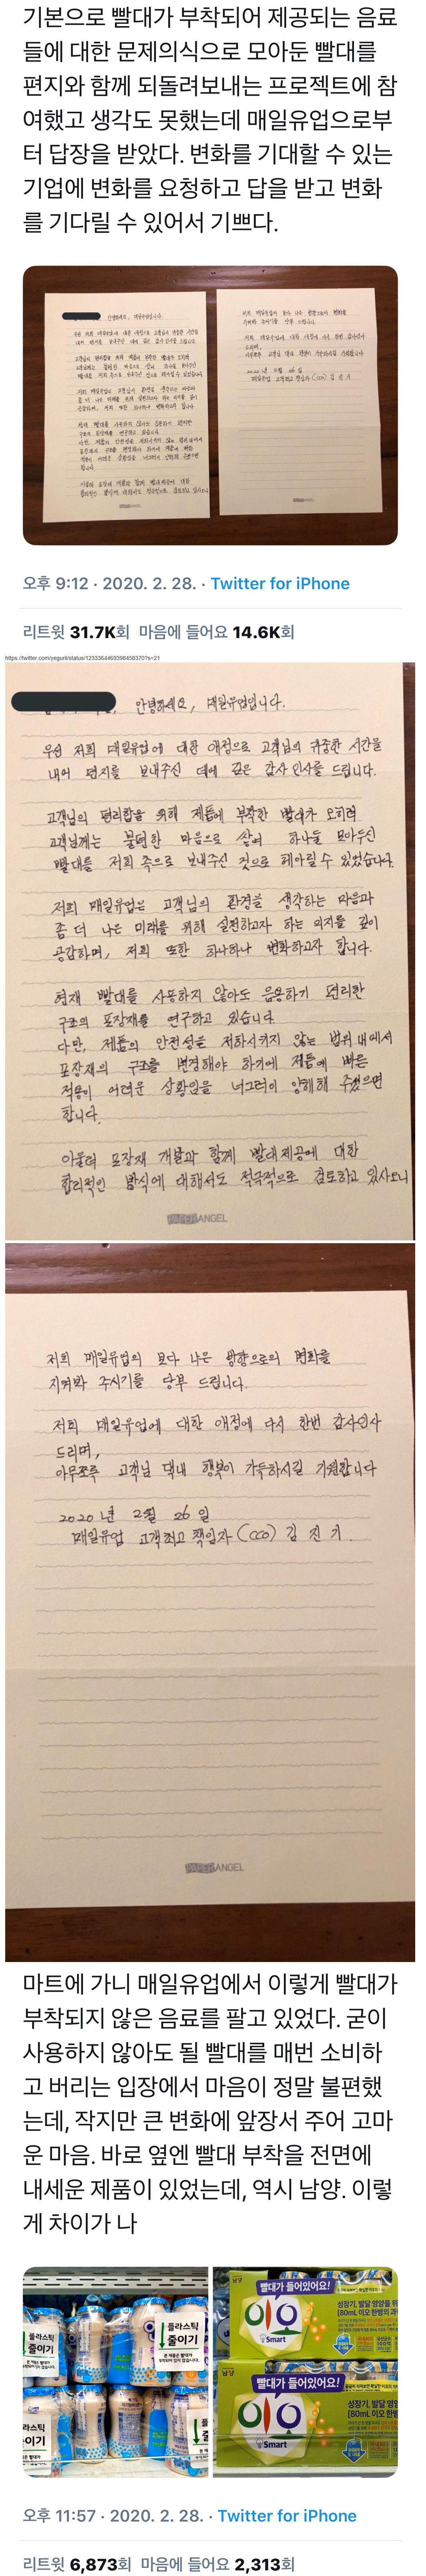 기본으로 빨대가 부착되어 제공되는 음료
들에 대한 문제의식으로 모아둔 빨대를
편지와 함께 되돌려보내는 프로젝트에 참
여했고 생각도 못했는데 매일유업으로부
터 답장을 받았다. 변화를 기대할 수 있는
기업에 변화를 요청하고 답을 받고 변화
를 기다릴 수 있어서 기쁘다.
오후 9:12 · 2020. 2. 28. · Twitter for iPhone
리트윗 31.7K회 마음에 들어요 14.6K회
안녕하세요, 매일유업입니다.
우선 저희 매일유업에 대한 애정으로 고객님의 귀중한 시간을
내어 편지를 보내주신 데에 깊은 감사 인사를 드립니다.
고객님의 편리함을 위해 제품에 부착한 빨대가 오히려
고객님께는 불편한 마음으로 쌓여 하나둘 모아두신
빨대를 저희 쪽으로 보내주신 것으로 헤아릴 수 있었습니다.
저희 매일유업은 고객님의 환경을 생각하는 마음과
좀 더 나은 미래를 위해 실천하고자 하는 의지를 깊이
공감하며, 저희 또한 하나하나 변화하고자 합니다.
현재 빨대를 사용하지 않아도 음용하기 편리한
구조의 포장재를 연구하고 있습니다.
다만, 제품의 안전성을 저하시키지 않는 범위 내에서
포장재의 구조를 변경해야 하기에 제품에 빠른
적용이 어려운 상황임을 너그러이 양해해 주셨으면
합니다.
아울러 포장재 개발과 함께 빨대 제공에 대한
합리적인 방식에 대해서도 적극적으로 검토하고 있사오니
PAPERANGEL
저희 매일유업의 보다 나은 방향으로의 변화를
지켜봐 주시기를 당부 드립니다.
저희 매일유업에 대한 애정에 다시 한번 감사인사
드리며,
아무쪼록 고객님 댁내 행복이 가득하시길 기원합니다
2020년 2월 26일
매일유업 고객최고책임자 (CCO) 김진기.
PAPERANGEL
마트에 가니 매일유업에서 이렇게 빨대가
부착되지 않은 음료를 팔고 있었다. 굳이
사용하지 않아도 될 빨대를 매번 소비하
고 버리는 입장에서 마음이 정말 불편했
는데, 작지만 큰 변화에 앞장서 주어 고마
운 마음. 바로 옆엔 빨대 부착을 전면에
내세운 제품이 있었는데, 역시 남양. 이렇
게 차이가 나
플라스틱
줄이기
남양
빨대가 들어있어요!
이오
Smart
성장기, 발달 영양을 위
[80mL 이오 한병의 과
남양
빨대가 들어있어요!
이오
Smart
성장기, 발달 영양
[80mL 이오 한병
오후 11:57 · 2020. 2. 28. · Twitter for iPhone
리트윗 6,873회 마음에 들어요 2,313회